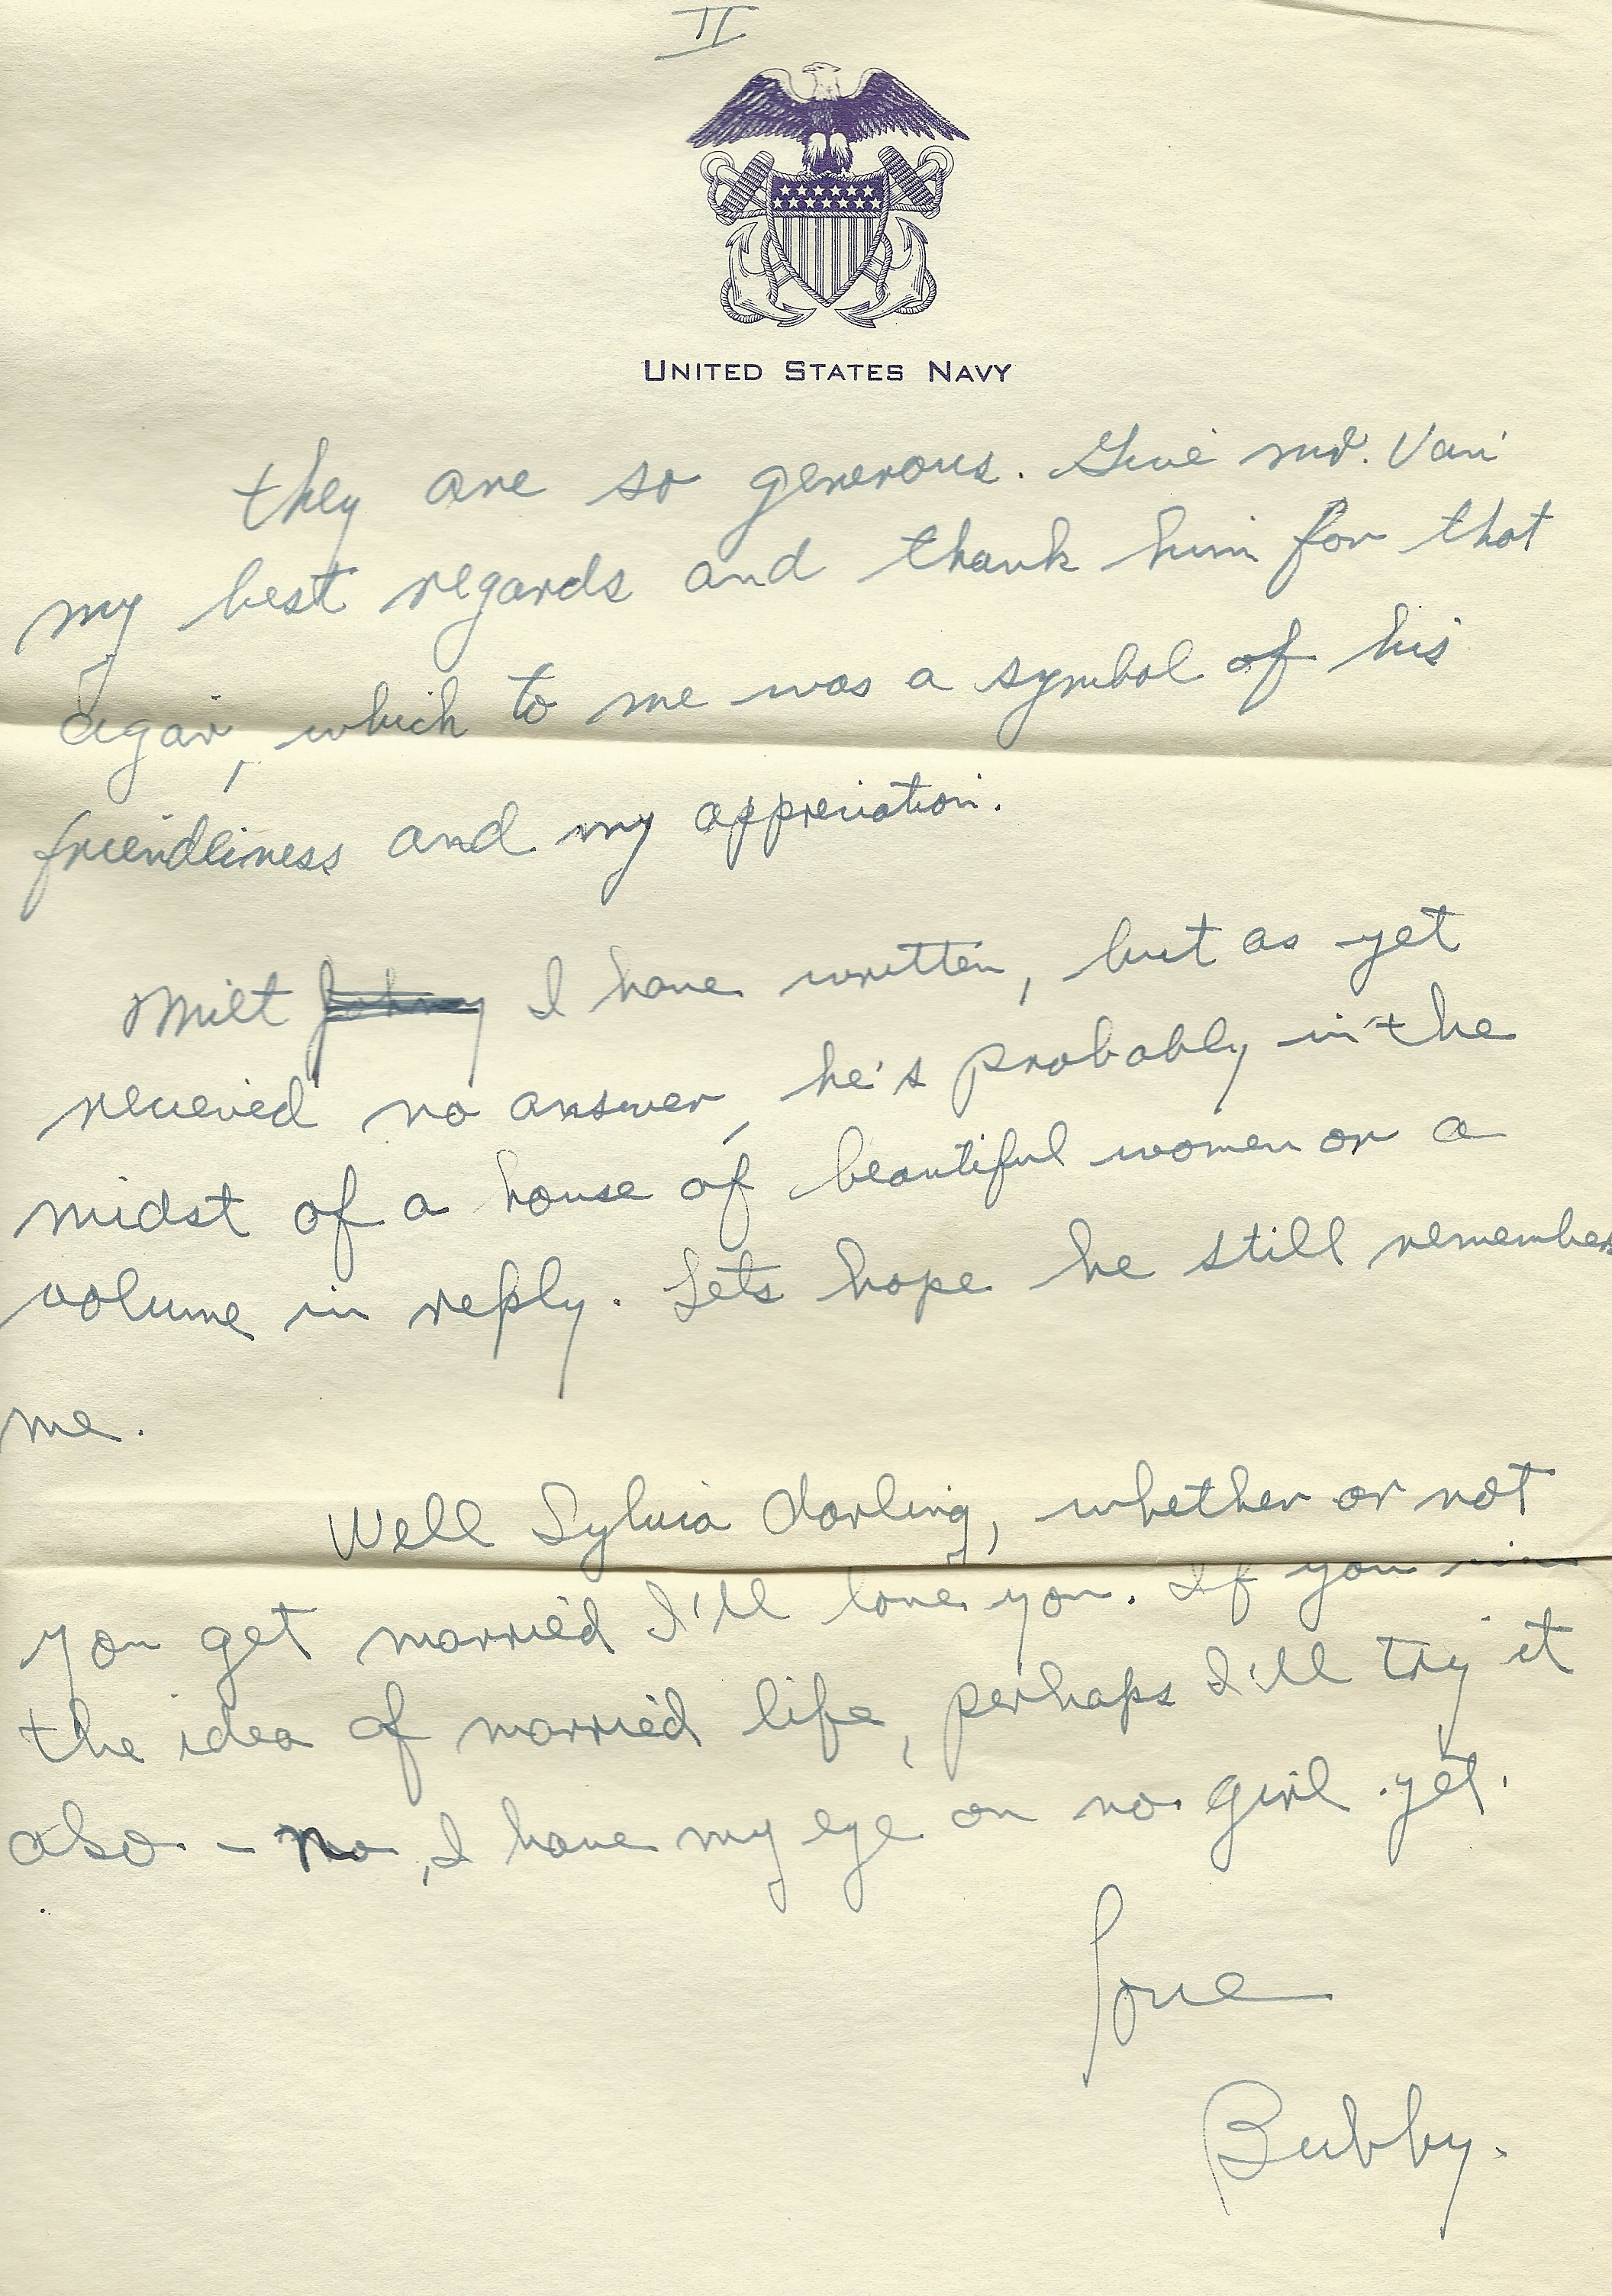 II
UNITED STATES NAVY
they are so generous. Give mr. Van
my best regards and thank him for that
cigar, which to me was a symbol of his
friendliness and my appreciation.
Milt Johnny I have written, but as yet
recieved no answer, he's probably in the
midst of a house of beautiful women or a
volume in reply. Lets hope he still remembers
me.
Well Sylvia darling, whether or not
you get married I'll love you. If you
the idea of married life, perhaps I'll try it
also - No, I have my eye on no girl yet.
Love
Bubby.